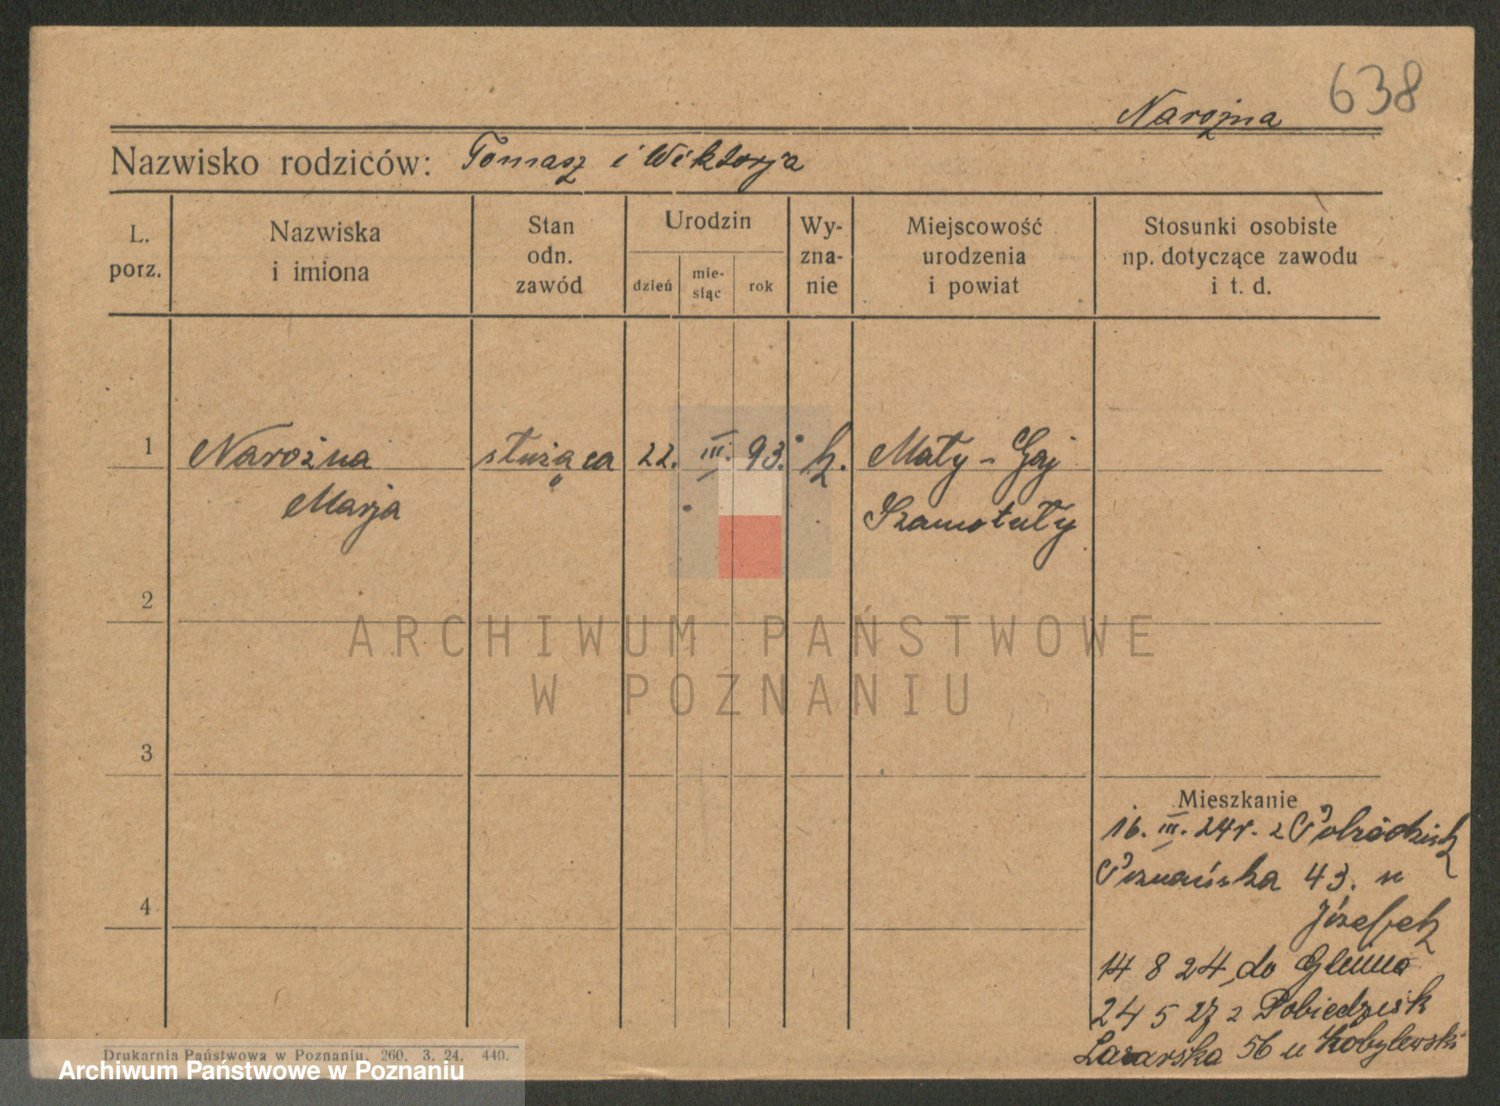 638
Narożna
Nazwisko rodziców: Tomasz i Wiktorja
L. porz.
Nazwiska i imiona
Stan odn. zawód
Urodzin
dzień
mie-siąc
rok
Wy-zna-nie
Miejscowość urodzenia i powiat
Stosunki osobiste np. dotyczące zawodu i t. d.
1 Narożna służąca 22. III. 93. k. Mały-Gaj
Marja Szamotuły
2
ARCHIWUM PAŃSTWOWE
W POZNANIU
3
Mieszkanie
16. III. 24 r. z
Poznańska 43.
4
14 8 24 do
24 5 27 z Pobiedzisk
56 u Kobylewski
Drukarnia Państwowa w Poznaniu. 260. 3. 24. 440.
Archiwum Państwowe w Poznaniu